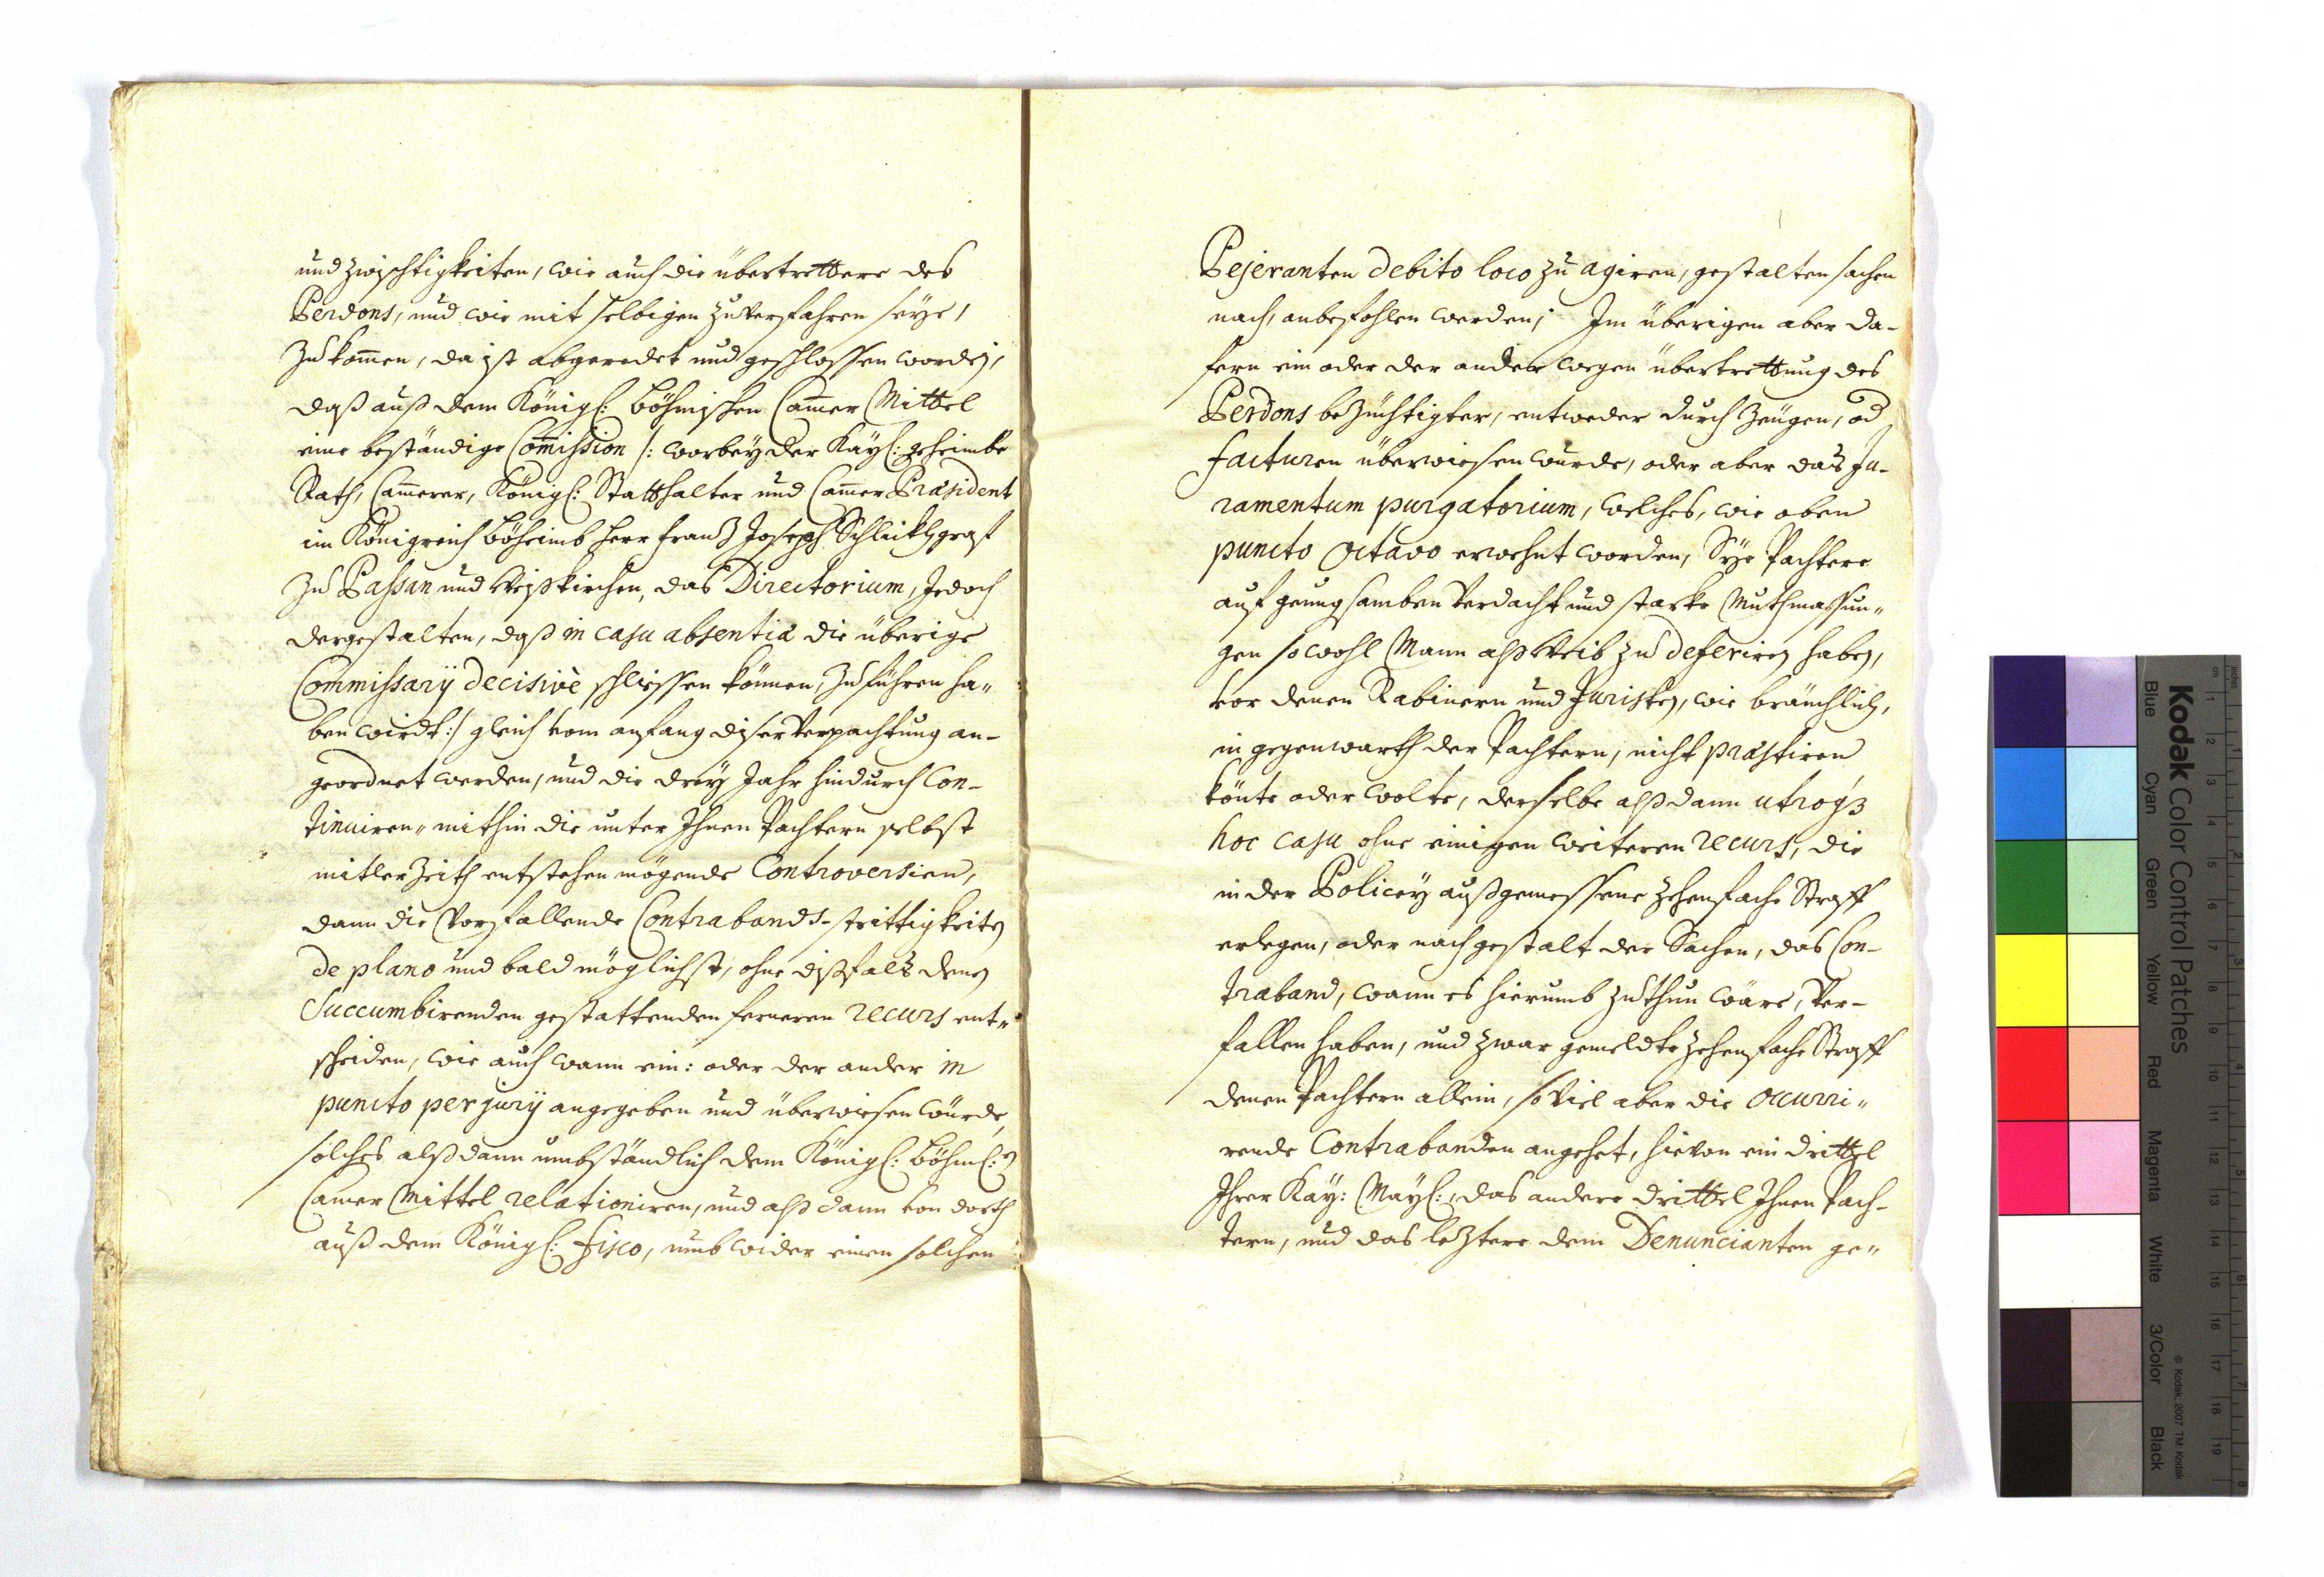 und zwischtigkeiten, wie auch die übertrettere des
Perdons, und wie mit selbigen zuverfahren seye,
zukom̅en, da ist abgeredet und geschlossen worden,
daß auß dem Königl: böhmischen Cam̅er Mittel
eine beständige Com̅ission /: worbey der Kayl: geheimbe
Rath, Cam̅erer, Königl: Statthalter und Cam̅er Præsident
im Königreich böheimb herr Frantz Joseph Schlickh graf
zu Passan und Weißkirchen, das Directorium, Jedoch
dergestalten, daß in casu absentiæ die überige
Commissarÿ decisivè schliessen können, zuführen ha„
ben wirdt :/ gleich vom anfang diser Verpachtung an-
geordnet werden, und die dreÿ Jahr hindurch Con-
tinuiren„ mithin die unter Ihnen Pachtern selbst
mitler Zeith entstehen mögende Controversien,
dann die Vorfallende Contrabands-strittigkeiten
de plano und bald möglichst, ohne dißfals denen
Succumbirenden gestattenden ferneren recurs ent„
scheiden, wie auch wann ein: oder der ander in
puncto perjurÿ angegeben und überwiesen würde,
solches alßdann umbständlich dem Königl: böhml:n
Camer Mittel relationiren, und alßdann von dorth
auß dem Königl: Fisco, umb wider einen solchen
Pejeranten debito loco zu agiren, gestalten sachen
nach, anbefohlen werden; Im überigen aber da-
fern ein oder der ander wegen übertrettung des
Perdons bezüchtigter, entweder durch Zeügen, od
facturen überwiesen wurde, oder aber das Ju-
ramentum purgatorium, welches, wie oben
puncto octavo erwehnt worden, Sye Pachtere
auf genugsamben Verdacht und starke Muthmassun„
gen sowohl Mann alß Weib zu deferiren haben,
vor denen Rabinern und Juristen, wie bräuchlich,
in gegenwarth der Pachtern, nicht præstiren
könte oder wolte, derselbe alßdann utroq3
hoc casu ohne einigen weiteren recurs, die
in der Policey außgemessene zehenfache Straff
erlegen, oder nach gestalt der Sachen, das Con-
traband, wann es hierumb zuthun wäre, Ver-
fallen haben, und zwar gemeldte zehenfache Straff
denen Pachtern allein, so Viel aber die occurri„
rende Contrabanden angehet, hievon ein drittel
Ihrer Kaÿ: Maÿl:, das andere drittel Ihnen Pach-
tern, und das leztere dem Denuncianten ge„
Kodak Color Control Patches
© Kodak, 2007 TM: Kodak
Blue Cyan Green Yellow Red Magenta White 3/Color Black
inches 1 2 3 4 5 6 7 8
cm 1 2 3 4 5 6 7 8 9 10 11 12 13 14 15 16 17 18 19